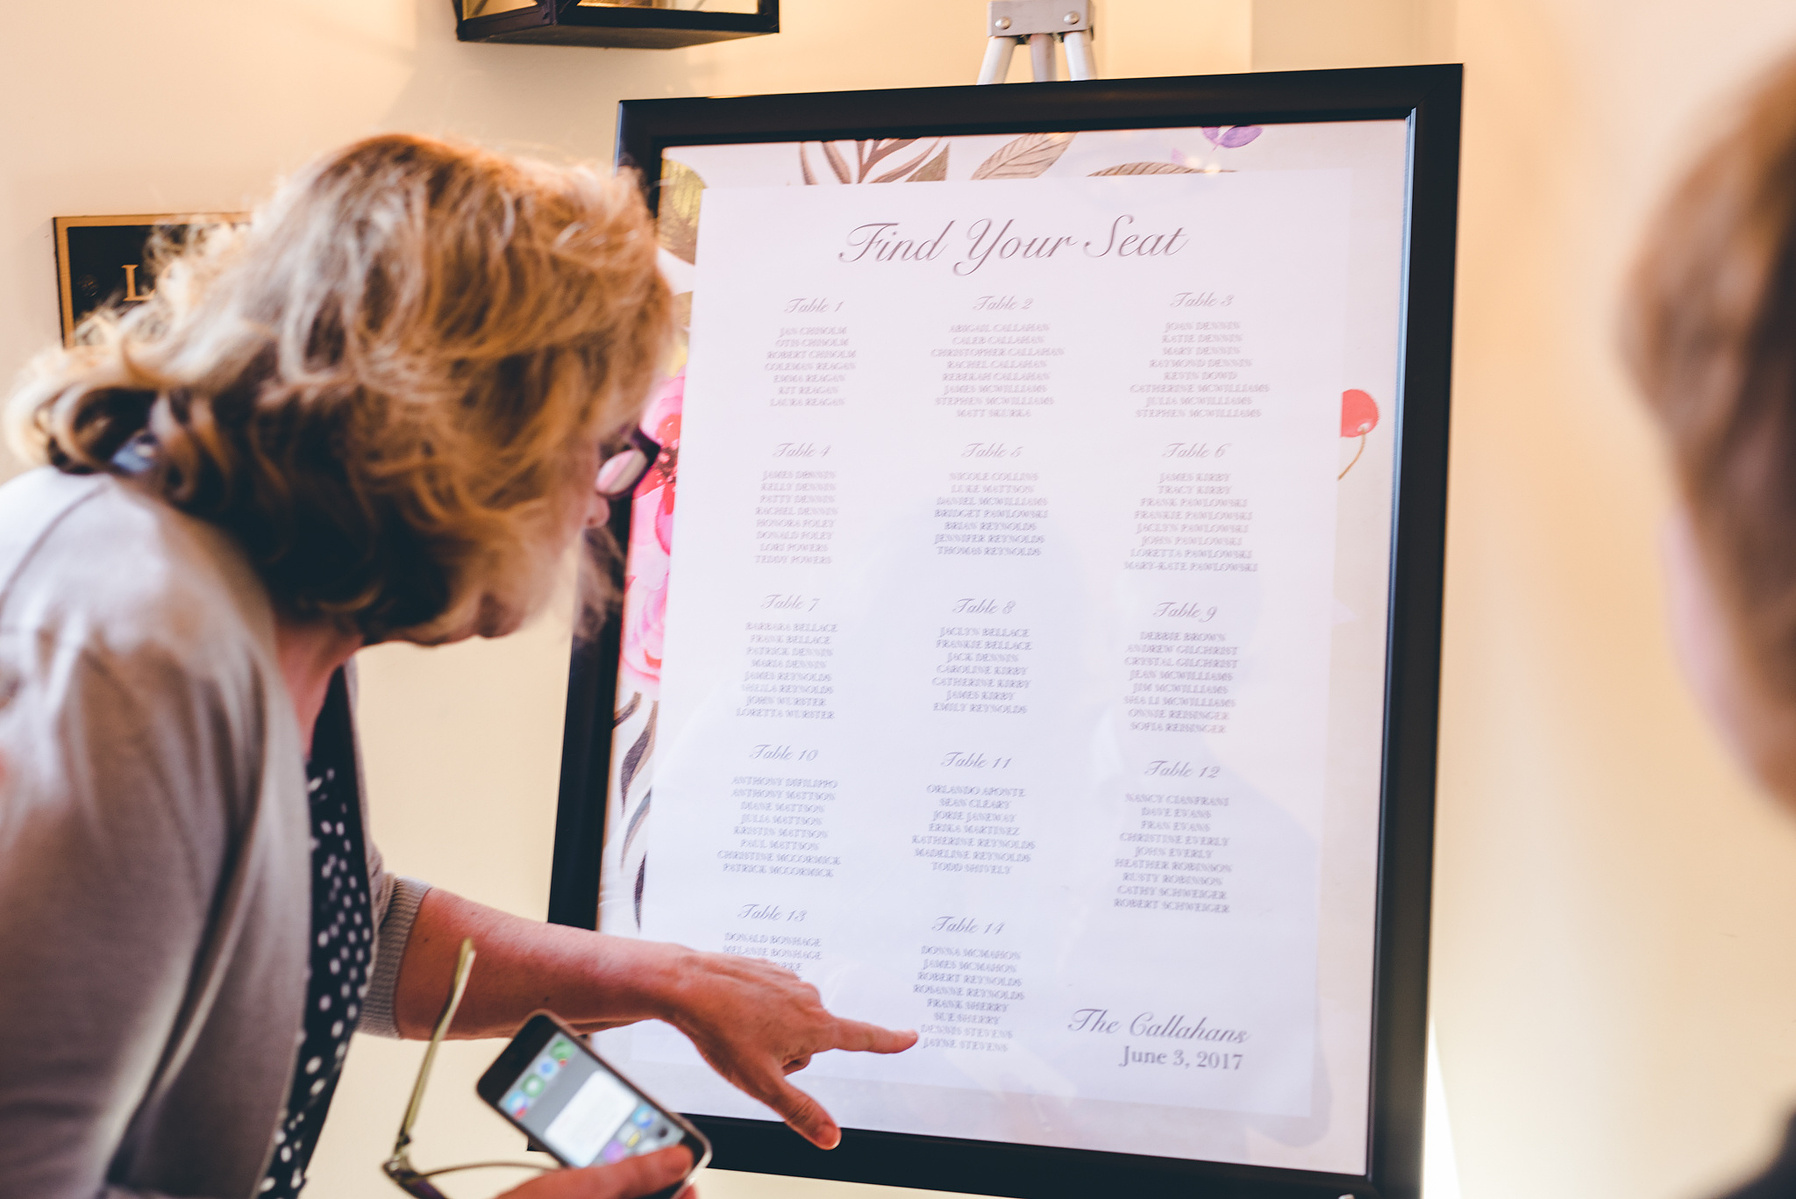 L
Find Your Seat
Table 1
JAN CHISOLM
OTIS CHISOLM
ROBERT CHISOLM
COLEMAN REAGAN
EMMA REAGAN
KIT REAGAN
LAURA REAGAN
Table 2
ABIGAIL CALLAHAN
CALEB CALLAHAN
CHRISTOPHER CALLAHAN
RACHEL CALLAHAN
REBEKAH CALLAHAN
JAMES MCWILLIAMS
STEPHEN MCWILLIAMS
MATT SKURKA
Table 3
JOAN DENNIN
KATIE DENNIN
MARY DENNIN
RAYMOND DENNIN
KEVIN DOWD
CATHERINE MCWILLIAMS
JULIA MCWILLIAMS
STEPHEN MCWILLIAMS
Table 4
JAMES DENNIN
KELLY DENNIN
PATTY DENNIN
RACHEL DENNIN
HONORA FOLEY
DONALD FOLEY
LORI POWERS
TEDDY POWERS
Table 5
NICOLE COLLINS
LUKE MATTSON
DANIEL MCWILLIAMS
BRIDGET PAWLOWSKI
BRIAN REYNOLDS
JENNIFER REYNOLDS
THOMAS REYNOLDS
Table 6
JAMES KIRBY
TRACY KIRBY
FRANK PAWLOWSKI
FRANKIE PAWLOWSKI
JACLYN PAWLOWSKI
JOHN PAWLOWSKI
LORETTA PAWLOWSKI
MARY-KATE PAWLOWSKI
Table 7
BARBARA BELLACE
FRANK BELLACE
PATRICK DENNIN
MARIA DENNIN
JAMES REYNOLDS
SHEILA REYNOLDS
JOHN WURSTER
LORETTA WURSTER
Table 8
JACLYN BELLACE
FRANKIE BELLACE
JACK DENNIN
CAROLINE KIRBY
CATHERINE KIRBY
JAMES KIRBY
EMILY REYNOLDS
Table 9
DEBBIE BROWN
ANDREW GILCHRIST
CRYSTAL GILCHRIST
JEAN MCWILLIAMS
JIM MCWILLIAMS
SHA LI MCWILLIAMS
ONNIE REISINGER
SOFIA REISINGER
Table 10
ANTHONY DIFILIPPO
ANTHONY MATTSON
DIANE MATTSON
JULIA MATTSON
KRISTIN MATTSON
PAUL MATTSON
CHRISTINE MCCORMICK
PATRICK MCCORMICK
Table 11
ORLANDO APONTE
SEAN CLEARY
JORIE JANEWAY
ERIKA MARTINEZ
KATHERINE REYNOLDS
MADELINE REYNOLDS
TODD SHIVELY
Table 12
NANCY CIANFRANI
DAVE EVANS
FRAN EVANS
CHRISTINE EVERLY
JOHN EVERLY
HEATHER ROBINSON
RUSTY ROBINSON
CATHY SCHWEIGER
ROBERT SCHWEIGER
Table 13
DONALD BONHAGE
MELANIE BONHAGE
Table 14
DONNA MCMAHON
JAMES MCMAHON
ROBERT REYNOLDS
ROSANNE REYNOLDS
FRANK SHERRY
SUE SHERRY
DENNIS STEVENS
JAYNE STEVENS
The Callahans
June 3, 2017